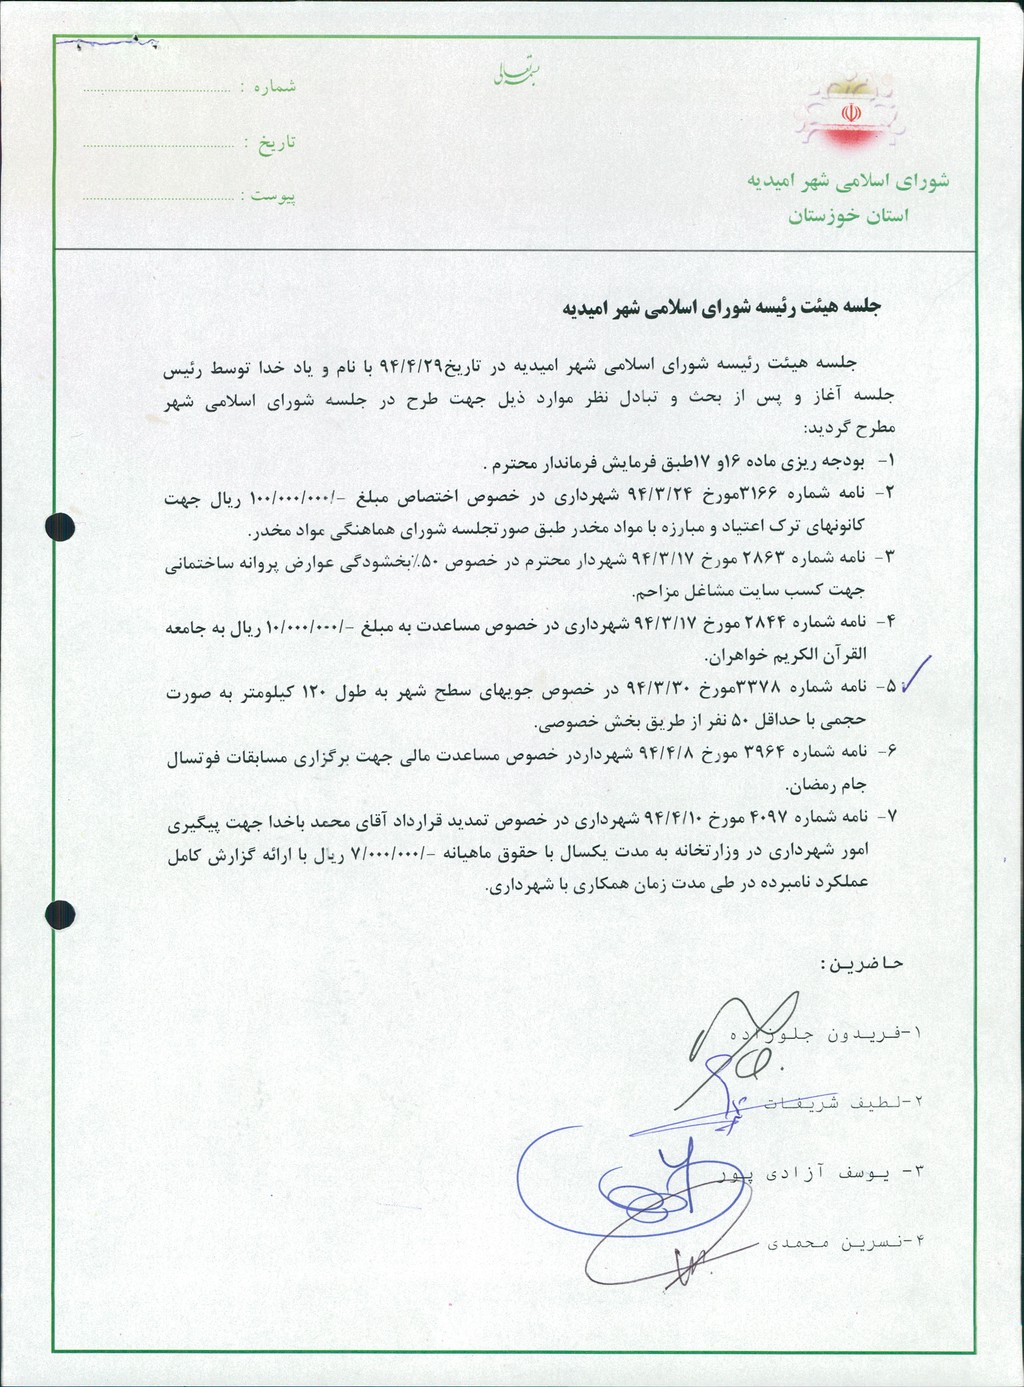 بسمه تعالی
شورای اسلامی شهر امیدیه
استان خوزستان
شماره :
تاریخ :
پیوست :
جلسه هیئت رئیسه شورای اسلامی شهر امیدیه
جلسه هیئت رئیسه شورای اسلامی شهر امیدیه در تاریخ۹۴/۴/۲۹ با نام و یاد خدا توسط رئیس
جلسه آغاز و پس از بحث و تبادل نظر موارد ذیل جهت طرح در جلسه شورای اسلامی شهر
مطرح گردید:
۱- بودجه ریزی ماده ۱۶و ۱۷طبق فرمایش فرماندار محترم .
۲- نامه شماره ۳۱۶۶مورخ ۹۴/۳/۲۴ شهرداری در خصوص اختصاص مبلغ -/۱۰۰/۰۰۰/۰۰۰ ریال جهت
کانونهای ترک اعتیاد و مبارزه با مواد مخدر طبق صورتجلسه شورای هماهنگی مواد مخدر.
۳- نامه شماره ۲۸۶۳ مورخ ۹۴/۳/۱۷ شهردار محترم در خصوص ۵۰٪بخشودگی عوارض پروانه ساختمانی
جهت کسب سایت مشاغل مزاحم.
۴- نامه شماره ۲۸۴۴ مورخ ۹۴/۳/۱۷ شهرداری در خصوص مساعدت به مبلغ -/۱۰/۰۰۰/۰۰۰ ریال به جامعه
القرآن الکریم خواهران.
۵- نامه شماره ۳۳۷۸مورخ ۹۴/۳/۳۰ در خصوص جویهای سطح شهر به طول ۱۲۰ کیلومتر به صورت
حجمی با حداقل ۵۰ نفر از طریق بخش خصوصی.
۶- نامه شماره ۳۹۶۴ مورخ ۹۴/۴/۸ شهرداردر خصوص مساعدت مالی جهت برگزاری مسابقات فوتسال
جام رمضان.
۷- نامه شماره ۴۰۹۷ مورخ ۹۴/۴/۱۰ شهرداری در خصوص تمدید قرارداد آقای محمد باخدا جهت پیگیری
امور شهرداری در وزارتخانه به مدت یکسال با حقوق ماهیانه -/۷/۰۰۰/۰۰۰ ریال با ارائه گزارش کامل
عملکرد نامبرده در طی مدت زمان همکاری با شهرداری.
حاضرین:
۱-فریدون جلوزاده
۲-لطیف شریفات
۳- یوسف آزادی پور
۴-نسرین محمدی